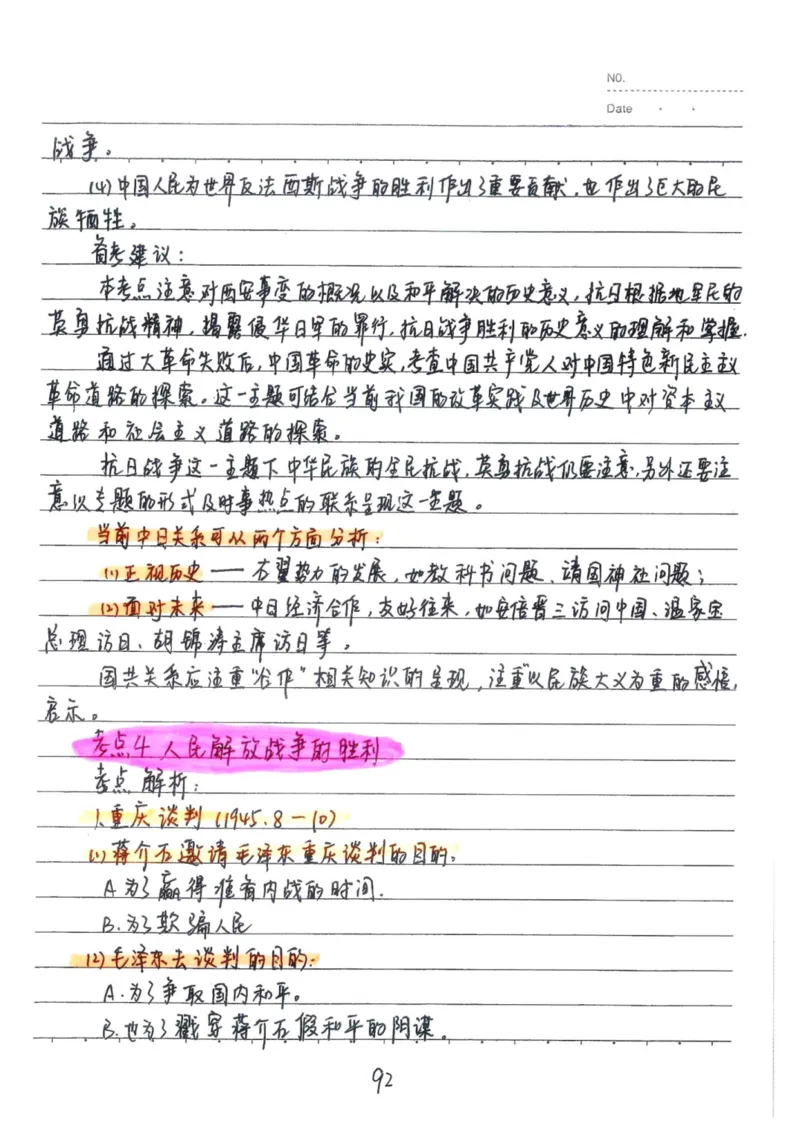 NO.
Date
战争。
(4)中国人民为世界反法西斯战争的胜利作出了重要贡献,也作出了巨大的民
族牺牲。
备考建议:
本考点注意对西安事变的概况以及和平解决的历史意义,抗日根据地军民的
英勇抗战精神,揭露侵华日军的罪行,抗日战争胜利的历史意义的理解和掌握.
通过大革命失败后,中国革命的史实,考查中国共产党人对中国特色新民主主义
革命道路的探索。这一主题可结合当前我国的改革实践及世界历史中对资本主义
道路和社会主义道路的探索。
抗日战争这一主题下中华民族的全民抗战,英勇抗战仍要注意,另外还要注
意以专题的形式及时事热点的联系呈现这一主题。
当前中日关系可从两个方面分析:
(1)正视历史——右翼势力的发展,如教科书问题、靖国神社问题;
(2)面对未来——中日经济合作,友好往来,如安倍晋三访问中国、温家宝
总理访日、胡锦涛主席访日等。
国共关系应注重“合作”相关知识的呈现,注重“以民族大义为重的感悟,
启示。
考点4 人民解放战争的胜利
考点解析:
1.重庆谈判(1945.8—10)
(1)蒋介石邀请毛泽东重庆谈判的目的。
A为了赢得准备内战的时间.
B.为了欺骗人民
(2)毛泽东去谈判的目的:
A.为了争取国内和平。
B.也为了戳穿蒋介石假和平的阴谋。
92